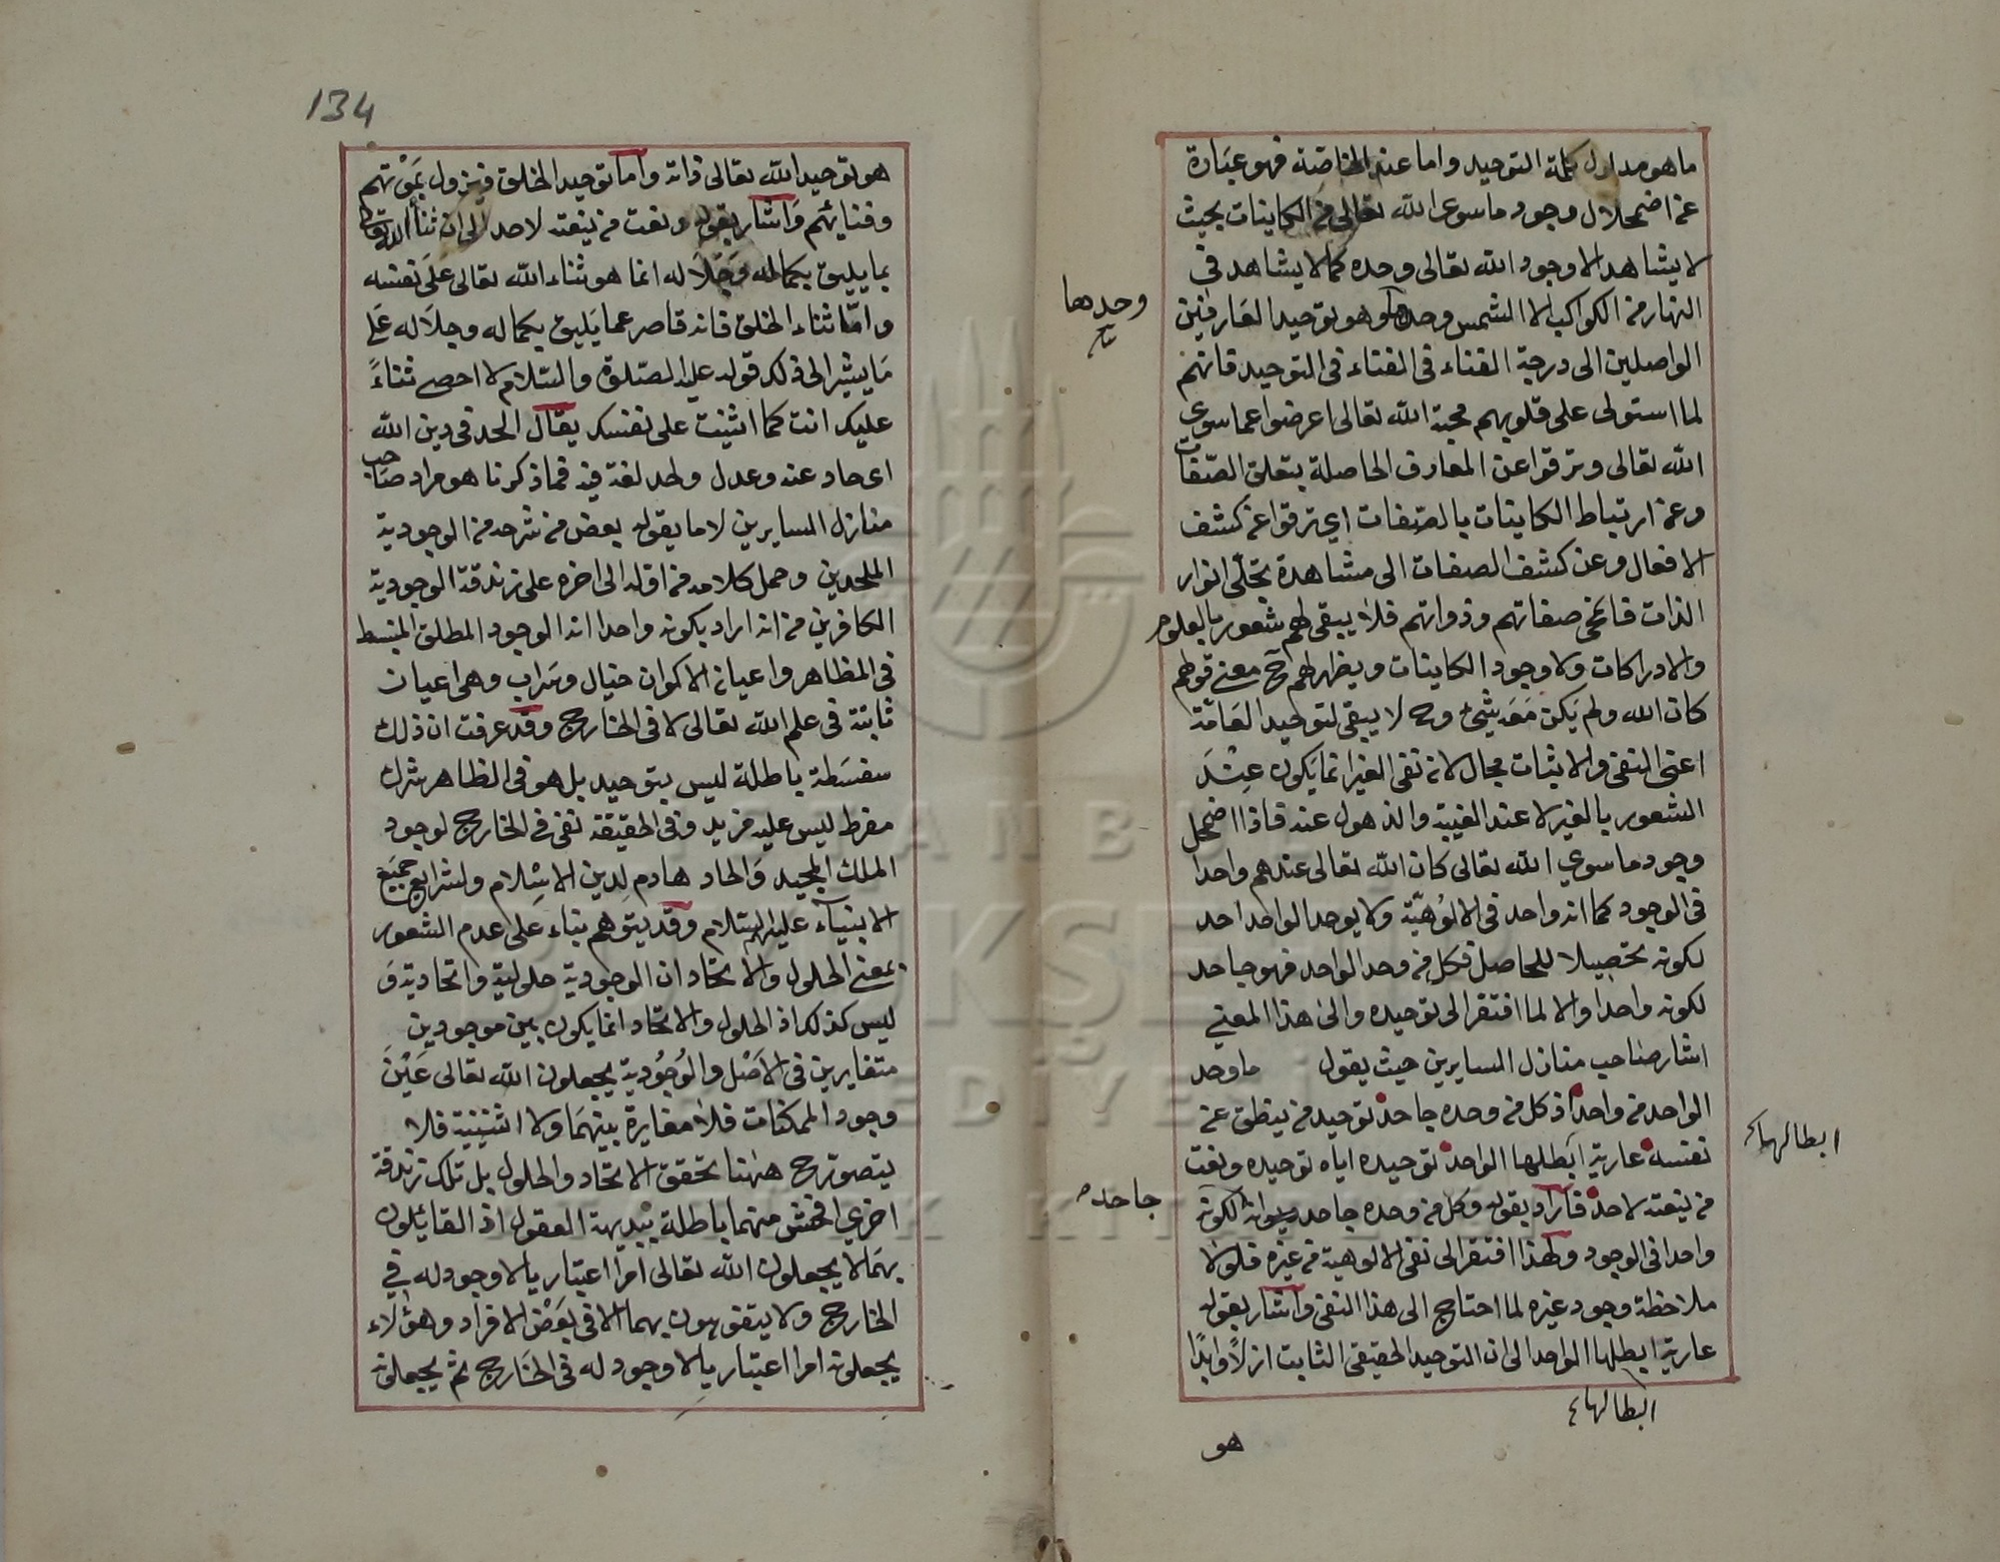 ما هو مدلول كلمة التوحيد واما عند الخاصة فهو عبارة
عن اضمحلال وجود ما سوى الله تعالى من الكاينات بحيث
لا يشاهد الا وجود الله تعالى وحده كما لا يشاهد في
النهار من الكواكب الا الشمس وحدها وهو توحيد العارفين
وحدها
الواصلين الى درجة الفناء في الفناء في التوحيد فانهم
لما استولى على قلوبهم محبة الله تعالى اعرضوا عما سوى
الله تعالى وترقوا عن المعارف الحاصلة بتعلق الصفات
وعن ارتباط الكاينات بالصفات اي ترقوا عن كشف
الافعال وعن كشف الصفات الى مشاهدة تجلى انوار
الذات فانمحى صفاتهم وذواتهم فلا يبقى لهم شعور بالعلوم
والادراكات ولا وجود الكاينات ويظهر لهم ح معنى قولهم
كان الله ولم يكن معه شئ وح لا يبقى لتوحيد العامة
اعنى النفى والاثبات مجال لان نفى الغير انما يكون عند
الشعور بالغير لا عند الغيبة والذهول عنه فاذا اضمحل
وجود ما سوي الله تعالى كان الله تعالى عندهم واحدا
في الوجود كما انه واحد في الالوهية ولا يوحد الواحد احد
لكونه تحصيلا للحاصل فكل من وحد الواحد فهو جاحد
لكونه واحدا والا لما افتقر الى توحيده والى هذا المعنى
اشار صاحب منازل السايرين حيث يقول ما وحد
الواحد من واحد اذ كل من وحده جاحد توحيد من ينطق عن
ابطالها
نفسه عارية ابطلها الواحد توحيده اياه توحيده ونعت
جاحده
من ينعته لاحد فاراد بقوله وكل من وحده جاحد لكونه
واحدا في الوجود ولهذا افتقر الى نفى الالوهية من غيره فلولا
ملاحظة وجود غيره لما احتاج الى هذا النفى واشار بقوله
عارية ابطلها الواحد الى ان التوحيد الحقيقى الثابت ازلا وابدا
ابطالها
هو
134
هو توحيد الله تعالى ذاته واما توحيد الخلق فيزول بموتهم
وفنايهم واشار بقوله ونعت من ينعته لاحد الى ان ثناء الله تعالى
بما يليق بكماله وجلاله انما هو ثناء الله تعالى على نفسه
واما ثناء الخلق فانه قاصر عما يليق بكماله وجلاله على
ما يشير الى ذلك قوله عليه الصلوة والسلام لا احصى ثناء
عليك انت كما اثنيت على نفسك يقال الحد في دين الله
اى حاد عنه وعدل ولحد لغة فيه فما ذكرنا هو مراد صاحب
منازل السايرين لا ما يقوله بعض من شرحه من الوجودية
الملحدين وحمل كلامه من اوله الى اخره على زندقة الوجودية
الكافرين من انه اراد بكونه واحدا انه الوجود المطلق المنبسط
في المظاهر واعيان الاكوان خيال وسراب وهى اعيان
ثابتة في علم الله تعالى لا في الخارج وقد عرفت ان ذلك
سفسطة باطلة ليس بتوحيد بل هو في الظاهر شرك
مفرط ليس عليه مزيد وفى الحقيقة نفى في الخارج لوجود
الملك المجيد والحاد هادم لدين الاسلام ولشرايع جميع
الانبياء عليهم السلام وقد يتوهم بناء على عدم الشعور
بمعنى الحلول والاتحاد ان الوجودية حلولية واتحادية و
ليس كذلك اذ الحلول والاتحاد انما يكون بين موجودين
متغايرين في الاصل والوجودية يجعلون الله تعالى عين
وجود الممكنات فلا مغايرة بينهما ولا اثنينية فلا
يتصور ح ههنا تحقق الاتحاد والحلول بل تلك زندقة
اخري افحش منهما باطلة ببديهة العقول اذ القايلون
بهما لا يجعلون الله تعالى امرا اعتباريا لا وجود له في
الخارج ولا يتفوهون بهما الا في بعض الافراد وهؤلاء
يجعلونه امرا اعتباريا لا وجود له في الخارج ثم يجعلونه